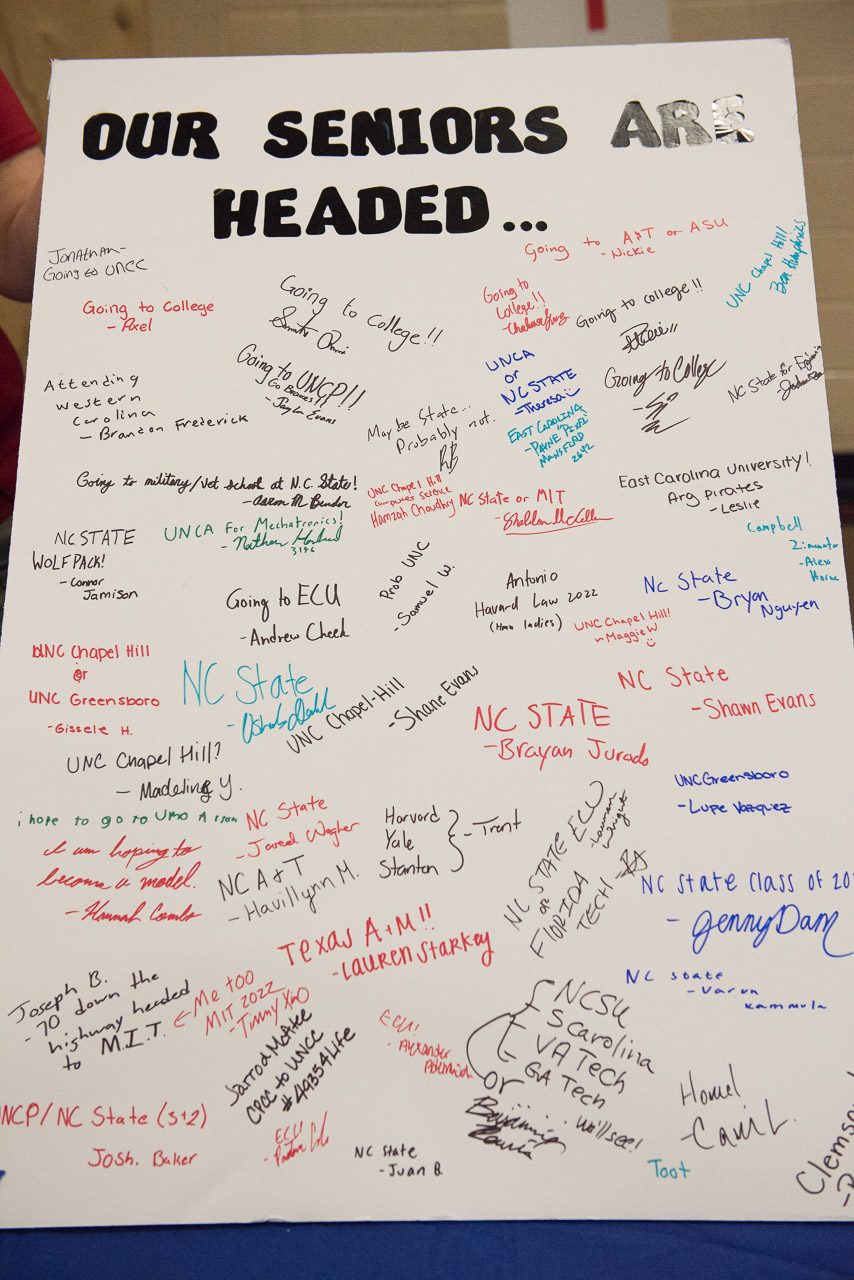 OUR SENIORS ARE
HEADED...
Jonathan-
Going to UNCC
Going to A&T or ASU
- Nickie
UNC Chapel Hill!
Ben Humphries
Going to College
- Axel
Going to College!!
Going to
College!!
Going to college!!
Attending
Western
Carolina
- Brandon Frederick
Going to UNCP!!
Go Braves!!
- Jaylin Evans
Maybe State...
Probably not.
UNCA
or
NC STATE
- Theresa
EAST CAROLINA
- PAYNE "PIXEL"
MANSFIELD
2642
Going to College
NC State for
Going to military/vet school at N.C. State!
- Aaron M. Bender
UNC Chapel Hill
computer science
Hamzah Choudhry
NC State or MIT
- Sheldon
East Carolina University!
Arg Pirates
- Leslie
Campbell
- Alexi
NC STATE
WOLFPACK!
- Connor
Jamison
UNCA For Mechatronics!
- Nathan
3146
Going to ECU
- Andrew Cheek
Prob UNC
- Samuel W.
Antonio
Havard Law 2022
(Hmu ladies)
NC State
- Bryan
Nguyen
UNC Chapel Hill!
~ Maggie W
UNC Chapel Hill
or
UNC Greensboro
- Gissele H.
NC State
UNC Chapel-Hill
- Shane Evans
NC State
- Shawn Evans
NC STATE
- Brayan Jurado
UNC Chapel Hill?
- Madeling Y.
UNC Greensboro
- Lupe Vazquez
i hope to go to
NC State
- Jared Wegher
Harvord
Yale
Stanton
- Trent
NC STATE
or
FLORIDA
TECH - RA
ECU
- Lauren
Wright
I am hoping to
become a model.
- Hannah Combs
NC A&T
- Havillynn M.
NC State Class of 20
- Jenny Dam
Texas A&M!!
- Lauren Starkey
NC State
- Varun
Kammula
Joseph B.
- 70 down the
highway headed
to M.I.T.
← Me too
MIT 2022
- Timmy Xiao
Jarrod McAfee
CPCC to UNCC
#49354Life
ECU!
- Alexander
NCSU
S carolina
VA Tech
GA Tech
or
...... we'll see!
Home!
UNCP/NC State (3+2)
Josh. Baker
ECU
NC State
- Juan B.
Toot
Clemson